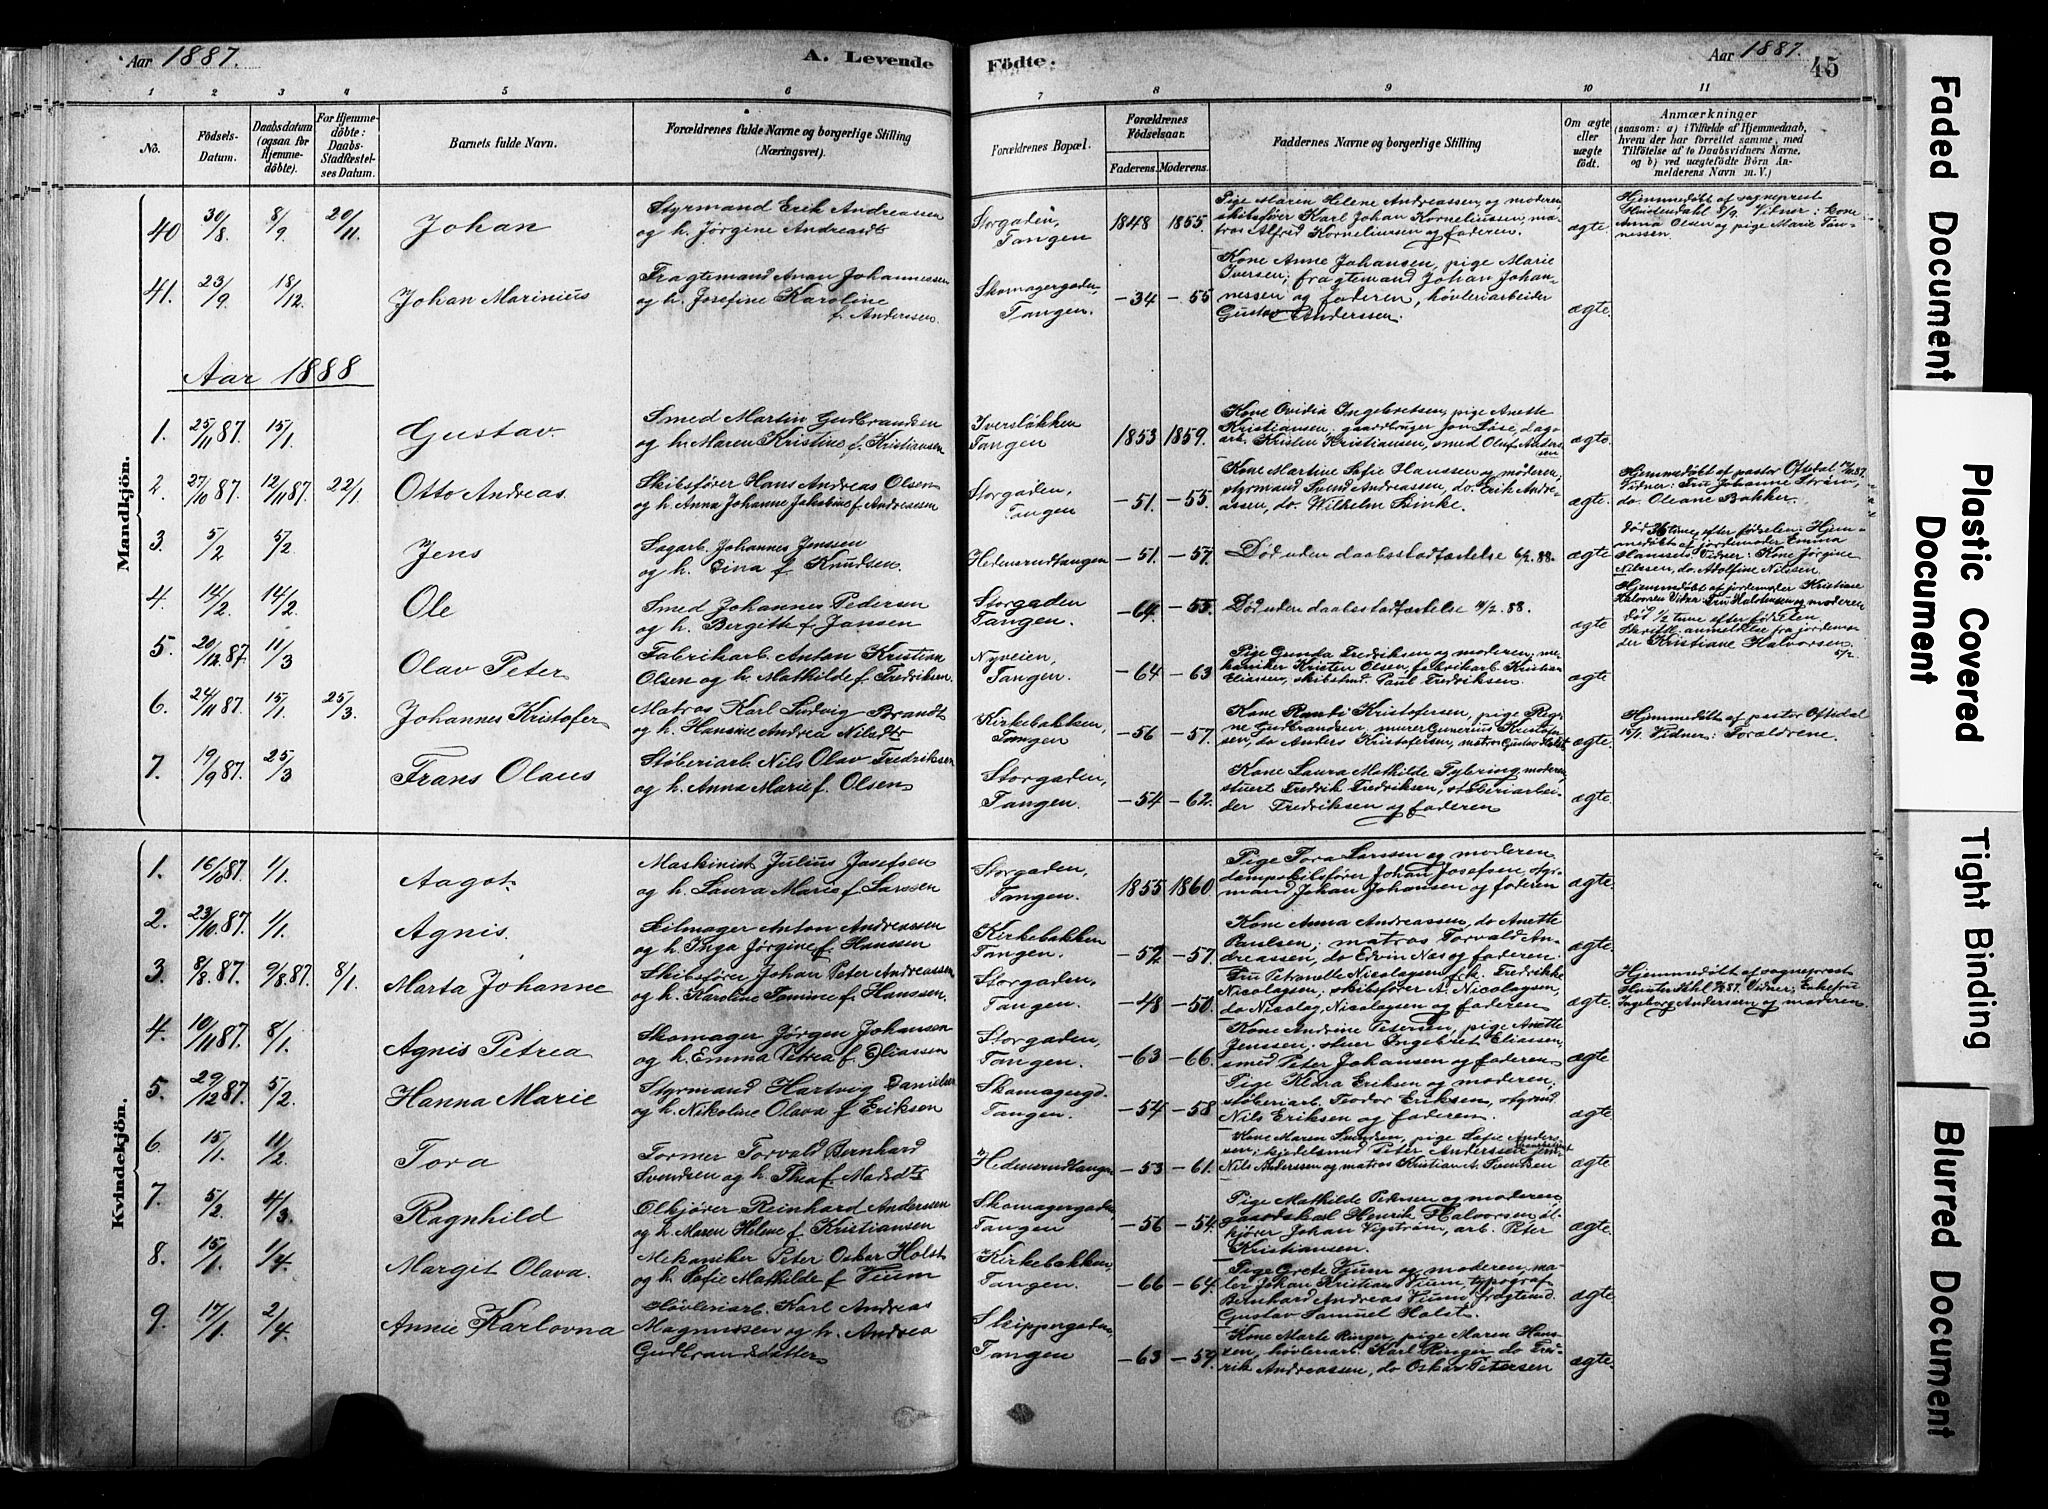 Aar 1887.
A. Levende Födte.
Aar 1887.
45
1 2 3 4 5 6 7 8 9 10 11
Nö.
Födsels-Datum.
Daabsdatum (ogsaa for Hjemmedöbte).
For Hjemmedöbte: Daabs-Stadfæstelses Datum.
Barnets fulde Navn.
Forældrenes fulde Navne og borgerlige Stilling (Næringsvei).
Forældrenes Bopæl.
Forældrenes Födselsaar.
Faderens. Moderens.
Faddernes Navne og borgerlige Stilling
Om ægte eller uægte födt.
Anmærkninger
(saasom: a) i Tilfælde af Hjemmedaab, hvem der har forrettet samme, med Tilföielse af to Daabsvidners Navne, og b) ved uægtefödte Börn Anmelderens Navn m. V.)
Mandkjön.
40 30/8 8/9 20/11 Johan
Styrmand Erik Andreassen
og h. Jørgine Andreasdt
Storgaden, Tangen
1848 1855
Pige Maren Helene Andreassen og moderen
skibsfører Karl Johan Korneliussen, ma-
tros Alfred Korneliussen og faderen.
ægte.
Hjemmedøbt af vogneprest
8/9 Vidner: kone
Anna Olsen og pige Marie Tan-
nessen.
41. 23/9 18/12 Johan Marinius
Fragtemand Anan Johannessen
og h. Josefine Karoline
f. Anderssen.
Skomagergaden, Tangen.
-34 -55
Kone Anne Johansen, pige Marie
Iversen; fragtemand Johan Johan-
nessen og faderen, høvleriarbeider
Gustav Anderssen.
ægte.
Aar 1888
1. 25/11 87. 15/1 Gustav.
Smed Martin Gudbrandsen
og h. Maren Kristine f. Kristiansen
Iversløkken Tangen
1853 1859.
Kone Ovidia Ingebretsen, pige Anette
Kristiansen; gaardbruger Jon Løse, dag-
arb. Kristen Kristiansen, smed Oluf Anders-
sen
ægte.
2. 27/10 87. 12/11 87. 22/1 Otto Andreas.
Skibsfører Hans Andreas Olsen
og h. Anna Johanne Jakobine f. Andreassen
Storgaden, Tangen
-51 -55.
Kone Martine Sofie Hanssen og moderen,
styrmand Svend Andreassen, do. Erik Andre-
assen, do. Wilhelm Brinke.
ægte.
Hjemmedøbt af pastor Oftedal 12/11 87.
Vidner: Fru Johanne Strøm,
do. Oleane Bakker.
3. 5/2 5/2 Jens
Sagarb. Johannes Jenssen
og h. Gina f. Knudsen.
Hedensrudtangen
-51. -57.
Død uden daabsstadfæstelse 6/2. 88.
ægte.
Død 36 time efter fødselen. Hjem-
medøbt af jordemoder Emma
Hanssen. Vidner: Kone Jørgine
Nilssen, do. Adolfine Nilssen.
4. 14/2 14/2 Ole
Smed Johannes Pedersen
og h. Bergitte f. Jansen
Storgaden Tangen.
-64. -55.
Død uden daabsstadfæstelse 14/2. 88.
ægte
Hjemmedøbt af jordemoder Kristiane
Halvorsen Vidner: Fru Halstensen og moderen
Død 1/2 time efter fødselen
Skriftl. anmeldelse fra jordemo-
der Kristiane Halvorsen.
5. 20/12 87. 11/3 Olav Peter
Fabrikarb. Anton Kristian
Olsen og h. Mathilde f. Fredriksen.
Nyveien, Tangen.
-64 -63
Pige Gunda Fredriksen og moderen; me-
kaniker Kristen Olsen, fabrikarb. Kristian
Eliassen, skibstmd. Paul Fredriksen.
ægte
6. 24/11 87. 15/1 25/3 Johannes Kristofer
Matros Karl Ludvig Brandt
og h. Hansine Andrea Nilsdtr
Kirkebakken, Tangen
-56 -57.
Kone Randi Kristofersen, pige Regi-
ne Gudbrandsen, murer Gunerius Kristofer-
sen, do Anders Kristofersen, matros Gustav Holst
ægte.
Hjemmedøbt af pastor Oftedal
15/1. Vidner: Forældrene.
7. 19/9 87. 25/3 Frans Olaus
Støberiarb. Nils Olav Fredriksen
og h. Anna Marie f. Olsen
Storgaden, Tangen.
-54 -62.
Kone Laura Mathilde Tybring, moderen,
stuert Fredrik Fredriksen, støberiarbei-
der Fredriksen og faderen
ægte.
Kvindekjön.
1. 16/10 87. 1/1. Aagot.
Maskinist Julius Josefsen
og h. Laura Marie f. Larssen
Storgaden, Tangen.
1855 1860.
Pige Tora Larssen og moderen
dampskibsfører Johan Josefsen, styr-
mand Johan Johansen og faderen
ægte.
2. 23/10 87. 1/1. Agnis.
Seilmager Anton Andreassen
og h. Inga Jørgine f. Hanssen
Kirkebakken Tangen.
-52 -57.
Kone Anna Andreassen, do Anette
Paulsen; matros Torvald An-
dreassen, do Edvin Næs og faderen.
ægte.
3. 8/8 87. 9/8 87. 8/1. Marta Johanne
Skibsfører Johan Peter Andreassen
og h. Karoline Tomine f. Hanssen.
Storgaden, Tangen.
-48 -50.
Fru Petranelle Nicolaysen, frk. Fredrikke
Nicolaysen; skibsfører A. Nicolaysen,
do Nicolay Nicolaysen og faderen
ægte.
Hjemmedøbt af vogneprest
9/8 87. Vidner: Enkefru
Ingeborg Anderssen og moderen
4. 10/11 87. 8/1. Agnis Petrea
Skomager Jørgen Johansen
og h. Emma Petrea f. Eliassen
Storgaden, Tangen.
-63 -66.
Kone Andrine Petersen, pige Anette
Jenssen; stuer Ingebret Eliassen,
smed Peter Johansen og faderen
ægte
5. 29/12 87. 5/2. Hanna Marie
Styrmand Hartvig Danielsen
og h. Nikoline Olava f. Eriksen
Skomagergd. Tangen.
-54 -58.
Pige Kedra Eriksen og moderen,
støberiarb. Teodor Eriksen, styrmd
Nils Eriksen og faderen.
ægte
6. 15/1. 11/2. Tora
Former Torvald Bernhard
Svendsen og h. Thea f. Madsdtr
Hedensrudtangen
-53 -61.
Kone Maren Svendsen, pige Sofie Anders-
sen; kjedelsmed Peter Anderssen,
Nils Anderssen og matros Kristian A. Svendsen
ægte
7. 5/2. 4/3. Ragnhild
Ølkjører Reinhard Anderssen
og h. Maren Helene f. Kristiansen
Skomagergaden, Tangen
-56 -54.
Pige Mathilde Petersen og moderen,
gaardskarl Henrik Halvorsen, øl-
kjører Johan Vigstrøm, arb. Peter
Kristiansen.
ægte
8. 15/1. 1/4. Margit Olava.
Mekaniker Peter Oskar Holst
og h. Sofie Mathilde f. Vium
Kirkebakken, Tangen.
-66 -64.
Pige Grete Vium og moderen, ma-
ler Johan Kristian Vium, typograf
Bernhard Andreas Vium, fragtemd.
Gustav Samuel Holst.
ægte
9. 17/1. 2/4. Annie Karlovna
Høvleriarb. Karl Andreas
Magnussen og h. Andrea
Gudbrandsdatter
Skippergaden, Tangen
-63 -59.
Kone Marte Ringer, pige Maren Hans-
sen, høvleriarb. Karl Ringer do Fred-
rik Andreassen, do Oskar Petersen
ægte.
Faded Document
Plastic Covered Document
Tight Binding
Blurred Document